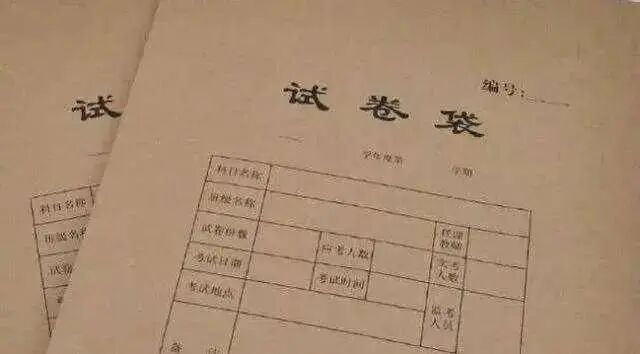 编号:
试卷袋
学年度第 学期
科目名称
班级名称 任课教师
试卷份数 应考人数 实考人数
考试日期 考试时间
考试地点 监考人员
备
试
科目名称
班级名称
试卷